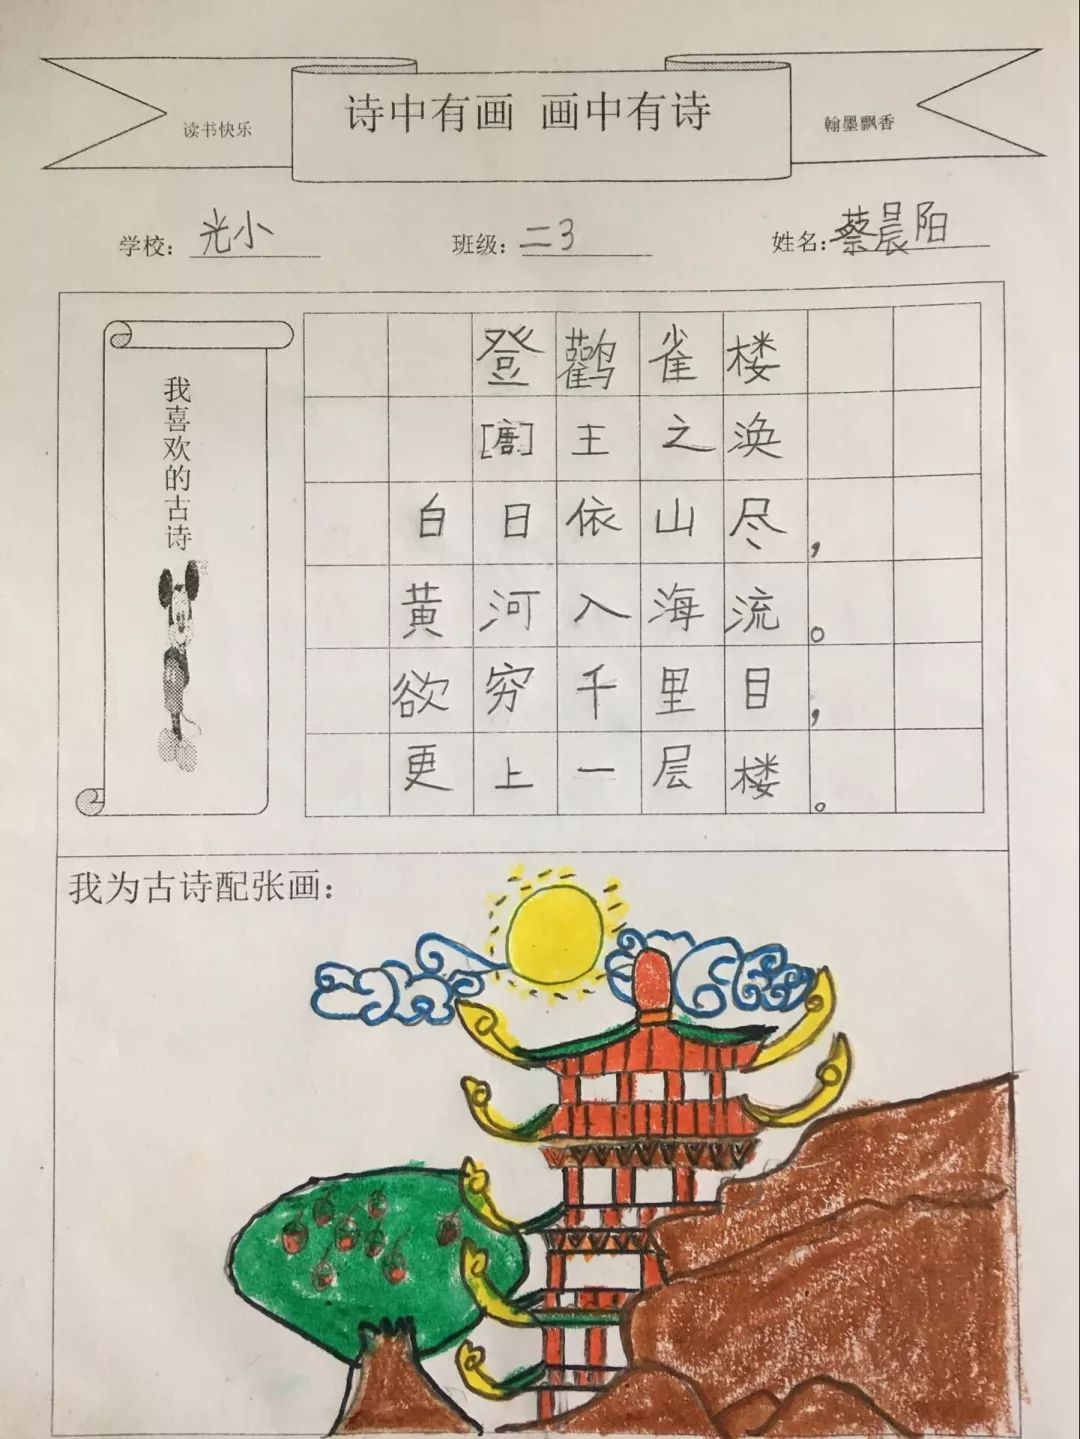 读书快乐
诗中有画 画中有诗
翰墨飘香
学校：光小 班级：二3 姓名：蔡晨阳
我喜欢的古诗
登鹳雀楼
[唐]王之涣
白日依山尽，
黄河入海流。
欲穷千里目，
更上一层楼。
我为古诗配张画：